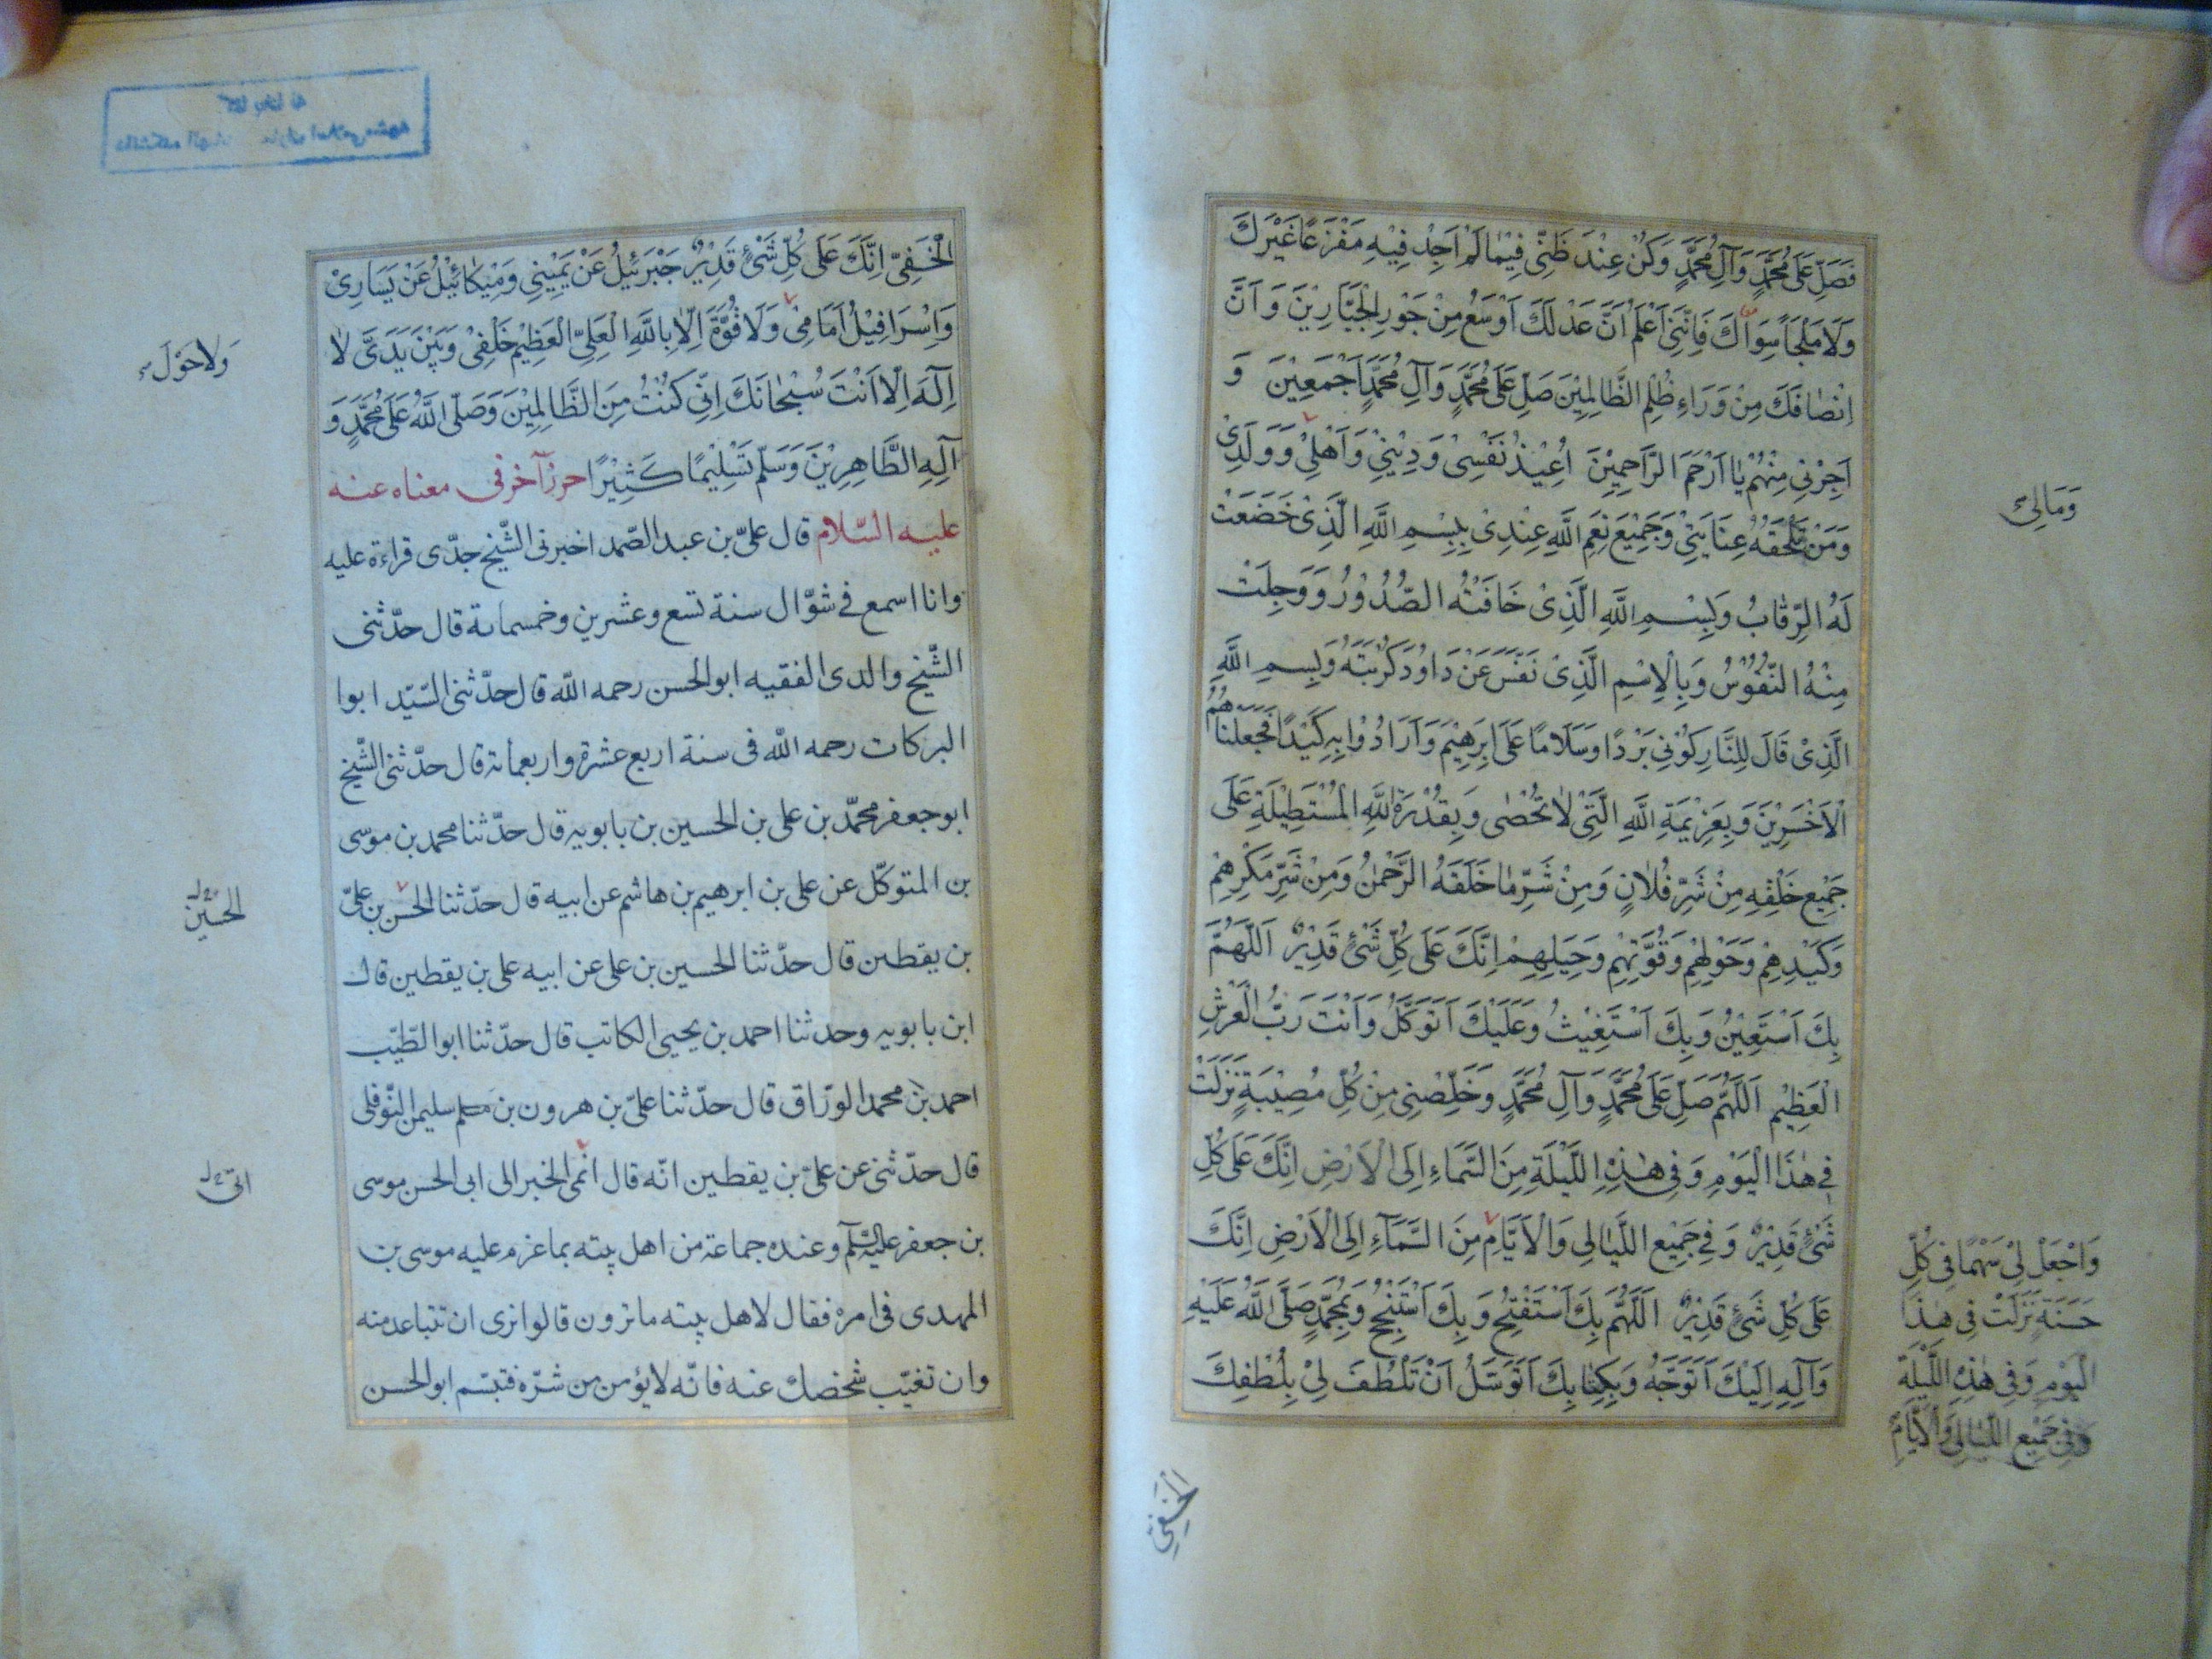 فَصَلِّ عَلَى مُحَمَّدٍ وَآلِ مُحَمَّدٍ وَكُنْ عِنْدَ ظَنِّى فِيْمَا لَمْ اَجِدْ فِيْهِ مَفْزَعًا غَيْرَكَ
وَلَا مَلْجَاً سِوَاكَ فَاِنَّنِىْ اَعْلَمُ اَنَّ عَدْلَكَ اَوْسَعُ مِنْ جَوْرِ الْجَبَّارِيْنَ وَ اَنَّ
اِنْصَافَكَ مِنْ وَرَاءِ ظُلْمِ الظَّالِمِيْنَ صَلِّ عَلَى مُحَمَّدٍ وَآلِ مُحَمَّدٍ اَجْمَعِيْنَ وَ
اَجِرْنِى مِنْهُمْ يَا اَرْحَمَ الرَّاحِمِيْنَ اُعِيْذُ نَفْسِىْ وَدِيْنِىْ وَاَهْلِىْ وَوَلَدِىْ
وَمَالِىْ
وَمَنْ تَلْحَقُهُ عِنَايَتِىْ وَجَمِيْعَ نِعَمِ اللَّهِ عِنْدِىْ بِبِسْمِ اللَّهِ الَّذِىْ خَضَعَتْ
لَهُ الرِّقَابُ وَبِسْمِ اللَّهِ الَّذِىْ خَافَتْهُ الصُّدُوْرُ وَوَجِلَتْ
مِنْهُ النُّفُوْسُ وَبِالْاِسْمِ الَّذِىْ نَفَّسَ عَنْ دَاوُدَ كُرْبَتَهُ وَبِسِمِ اللَّهِ
الَّذِىْ قَالَ لِلنَّارِ كُوْنِى بَرْدًا وَسَلَامًا عَلَى اِبْرَهِيْمَ وَاَرَادُوْا بِهِ كَيْدًا فَجَعَلْنَاهُمُ
الْاَخْسَرِيْنَ وَبِعَزِيْمَةِ اللَّهِ الَّتِىْ لَا تُحْصٰى وَبِقُدْرَةِ اللَّهِ الْمُسْتَطِيْلَةِ عَلَى
جَمِيْعِ خَلْقِهِ مِنْ شَرِّ فُلَانٍ وَمِنْ شَرِّ مَا خَلَقَهُ الرَّحْمٰنُ وَمِنْ شَرِّ مَكْرِهِمْ
وَكَيْدِهِمْ وَحَوْلِهِمْ وَقُوَّتِهِمْ وَحِيَلِهِمْ اِنَّكَ عَلَى كُلِّ شَىْءٍ قَدِيْرٌ اَللَّهُمَّ
بِكَ اَسْتَعِيْنُ وَبِكَ اَسْتَغِيْثُ وَعَلَيْكَ اَتَوَكَّلُ وَاَنْتَ رَبُّ الْعَرْشِ
الْعَظِيْمِ اَللَّهُمَّ صَلِّ عَلَى مُحَمَّدٍ وَآلِ مُحَمَّدٍ وَخَلِّصْنِى مِنْ كُلِّ مُصِيْبَةٍ نَزَلَتْ
فِى هٰذَا الْيَوْمِ وَفِى هٰذِهِ اللَّيْلَةِ مِنَ السَّمَاءِ اِلَى الْاَرْضِ اِنَّكَ عَلَى كُلِّ
شَىْءٍ قَدِيْرٌ وَفِى جَمِيْعِ اللَّيَالِى وَالْاَيَّامِ مِنَ السَّمَآءِ اِلَى الْاَرْضِ اِنَّكَ
عَلَى كُلِّ شَىْءٍ قَدِيْرٌ اَللَّهُمَّ بِكَ اَسْتَفْتِحُ وَبِكَ اَسْتَنْجِحُ وَبِمُحَمَّدٍ صَلَّى اللَّهُ عَلَيْهِ
وَآلِهِ اِلَيْكَ اَتَوَجَّهُ وَبِكِتَابِكَ اَتَوَسَّلُ اَنْ تَلْطُفَ لِىْ بِلُطْفِكَ
وَاجْعَلْ لِىْ سَهْمًا فِى كُلِّ
حَسَنَةٍ نَزَلَتْ فِى هٰذَا
الْيَوْمِ وَفِى هٰذِهِ اللَّيْلَةِ
وَفِى جَمِيْعِ اللَّيَالِى وَالْاَيَّامِ
الْخَفِىِّ
الْخَفِىِّ اِنَّكَ عَلَى كُلِّ شَىْءٍ قَدِيْرٌ جَبْرَئِيْلُ عَنْ يَمِيْنِى وَمِيْكَائِيْلُ عَنْ يَسَارِىْ
وَاِسْرَافِيْلُ اَمَامِىْ وَلَا قُوَّةَ اِلَّا بِاللَّهِ الْعَلِىِّ الْعَظِيْمِ خَلْفِىْ وَبَيْنَ يَدَىَّ لَا
وَلَا حَوْلَ
اِلَهَ اِلَّا اَنْتَ سُبْحَانَكَ اِنِّى كُنْتُ مِنَ الظَّالِمِيْنَ وَصَلَّى اللَّهُ عَلَى مُحَمَّدٍ وَ
آلِهِ الطَّاهِرِيْنَ وَسَلَّمَ تَسْلِيْمًا كَثِيْرًا احرز آخر فى معناه عنه
عليه السّلام قال علىّ بن عبد الصّمد اخبرنى الشّيخ جدّى قراءة عليه
وانا اسمع فى شوّال سنة تسع وعشرين وخمسمائة قال حدّثنى
الشّيخ والدى الفقيه ابو الحسن رحمه اللّه قال حدّثنى السّيّد ابوا
البركات رحمه اللّه فى سنة اربع عشرة واربعمائة قال حدّثنى الشّيخ
ابو جعفر محمّد بن على بن الحسين بن بابويه قال حدّثنا محمد بن موسى
بن المتوكّل عن على بن ابرهيم بن هاشم عن ابيه قال حدّثنا الحسن بن علىّ
الحسين
بن يقطين قال حدّثنا الحسين بن على عن ابيه على بن يقطين قال
ابن بابويه وحدثنا احمد بن يحيى الكاتب قال حدّثنا ابو الطّيّب
احمد بن محمد الورّاق قال حدّثنا علىّ بن هرون بن سليمن النّوفلى
قال حدّثنى عن علىّ بن يقطين انّه قال انمى الخبر الى ابى الحسن موسى
بن جعفر عليه السّلم وعنده جماعة من اهل بيته بما عزم عليه موسى بن
المهدى فى امره فقال لاهل بيته ما ترون قالوا نرى ان تتباعد منه
وان تغيّب شخصك عنه فانّه لا يؤمن من شرّه فتبسّم ابو الحسن